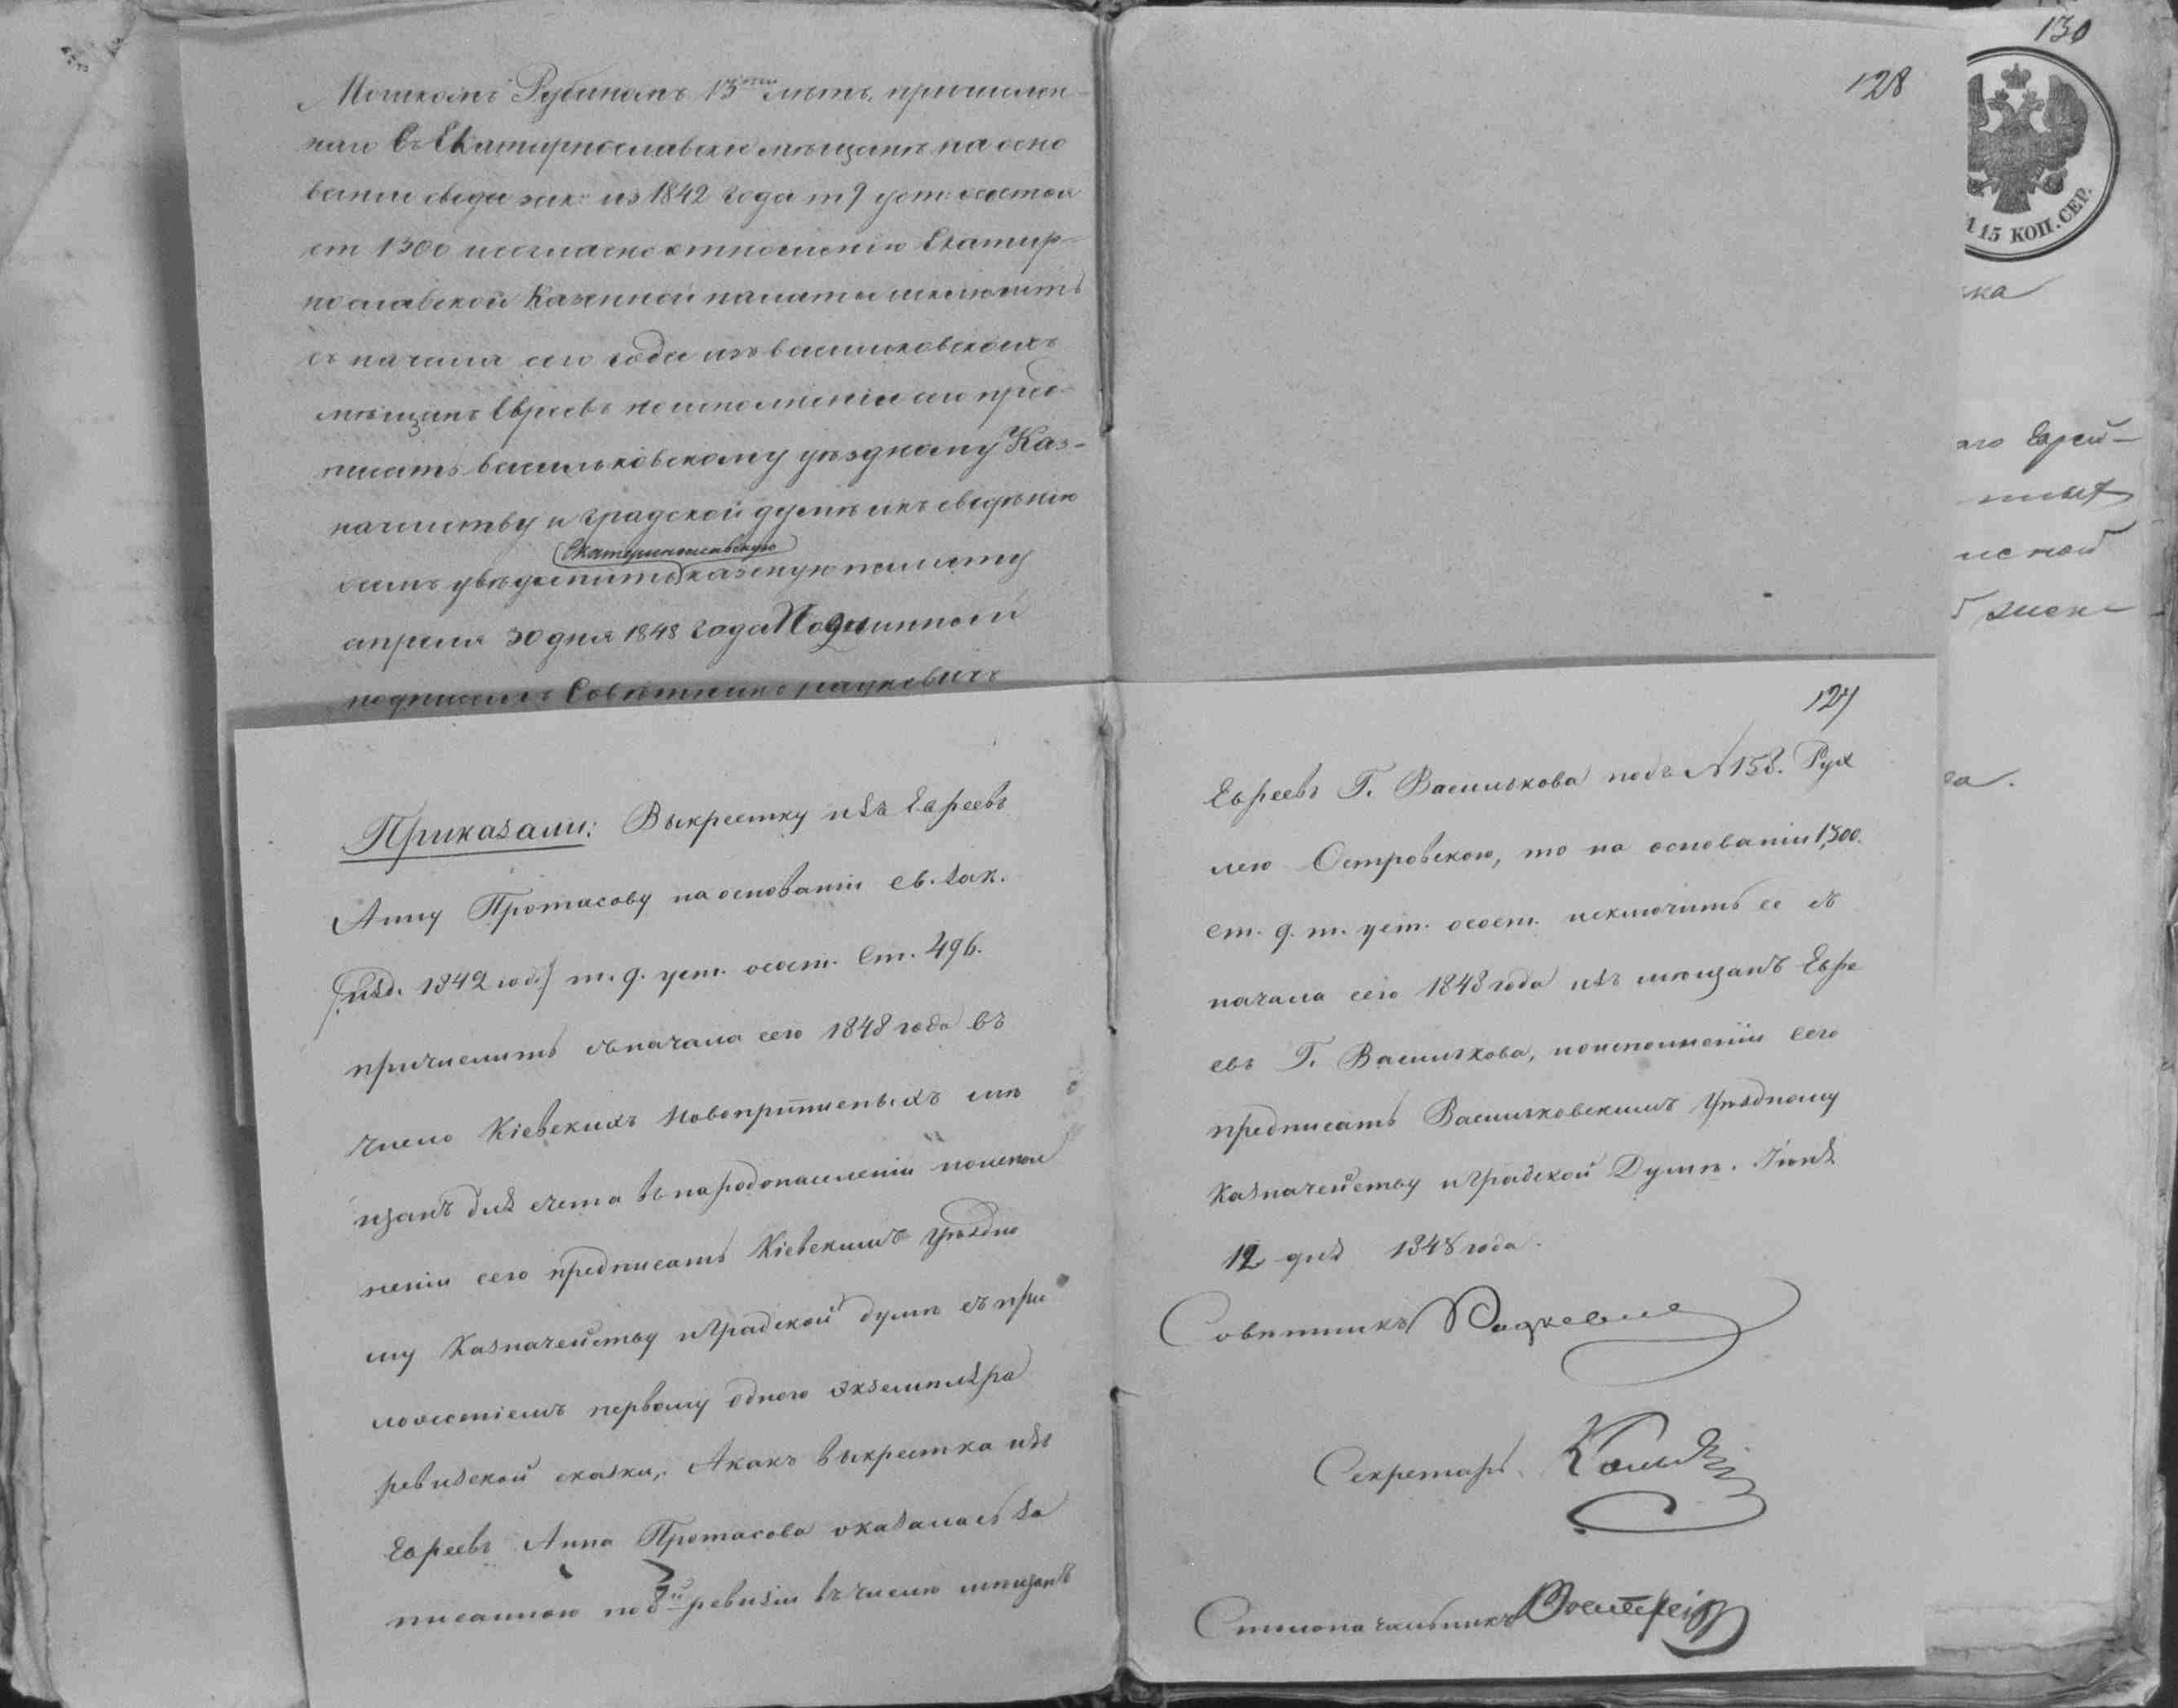 130
128
Мошкомъ Рубиномъ 13ти лѣтъ, причислен-
наго въ Екатеринославскіе мѣщане на осно
ваніи свода зак: из 1842 года т 9 уст: о состоя
ст 1300 и согласно отношенію Екатир-
нославской Казенной палаты исключить
съ начала сего года изъ васильковскихъ
мѣщанъ Евреевъ по исполненію сего пред-
писать васильковскому уѣздному Каз-
начейству и градской думѣ и къ свѣдѣнію
Екатеринославскую
увѣдомить казеную палату
апреля 30 дня 1848 года Подлинной
подписалъ Совѣтникъ
115 КОП. СЕР.
Приказали: Выкрестку изъ Евреевъ
Анну Протасову на основаніи св. зак.
(изд. 1842 год.) т. 9. уст. о сост. Ст. 496.
причислить съ начала сего 1848 года въ
число Кіевскихъ Новоприписныхъ мѣ
щанъ для счета въ народонаселеніи по испол
неніи сего предписать Кіевскимъ Уѣздно
му Казначейству и Градской думѣ съ при
ложеніемъ первому одного экземпляра
ревизской сказки, А какъ выкрестка изъ
Евреевъ Анна Протасова оказалась за
писанною по 8й ревизіи въ число мѣщанъ
127
Евреевъ Г. Василькова подъ № 158. Рух
лею Островскою, то на основаніи 1,300.
ст. 9. т. уст. о сост. исключить ее съ
начала сего 1848 года изъ мѣщанъ Евре
евъ Г. Василькова, по исполненіи сего
предписать Васильковскимъ Уѣздному
Казначейству и Градской Думѣ. Іюня
12 дня 1848 года.
Совѣтникъ
Секретарь
Столоначальникъ